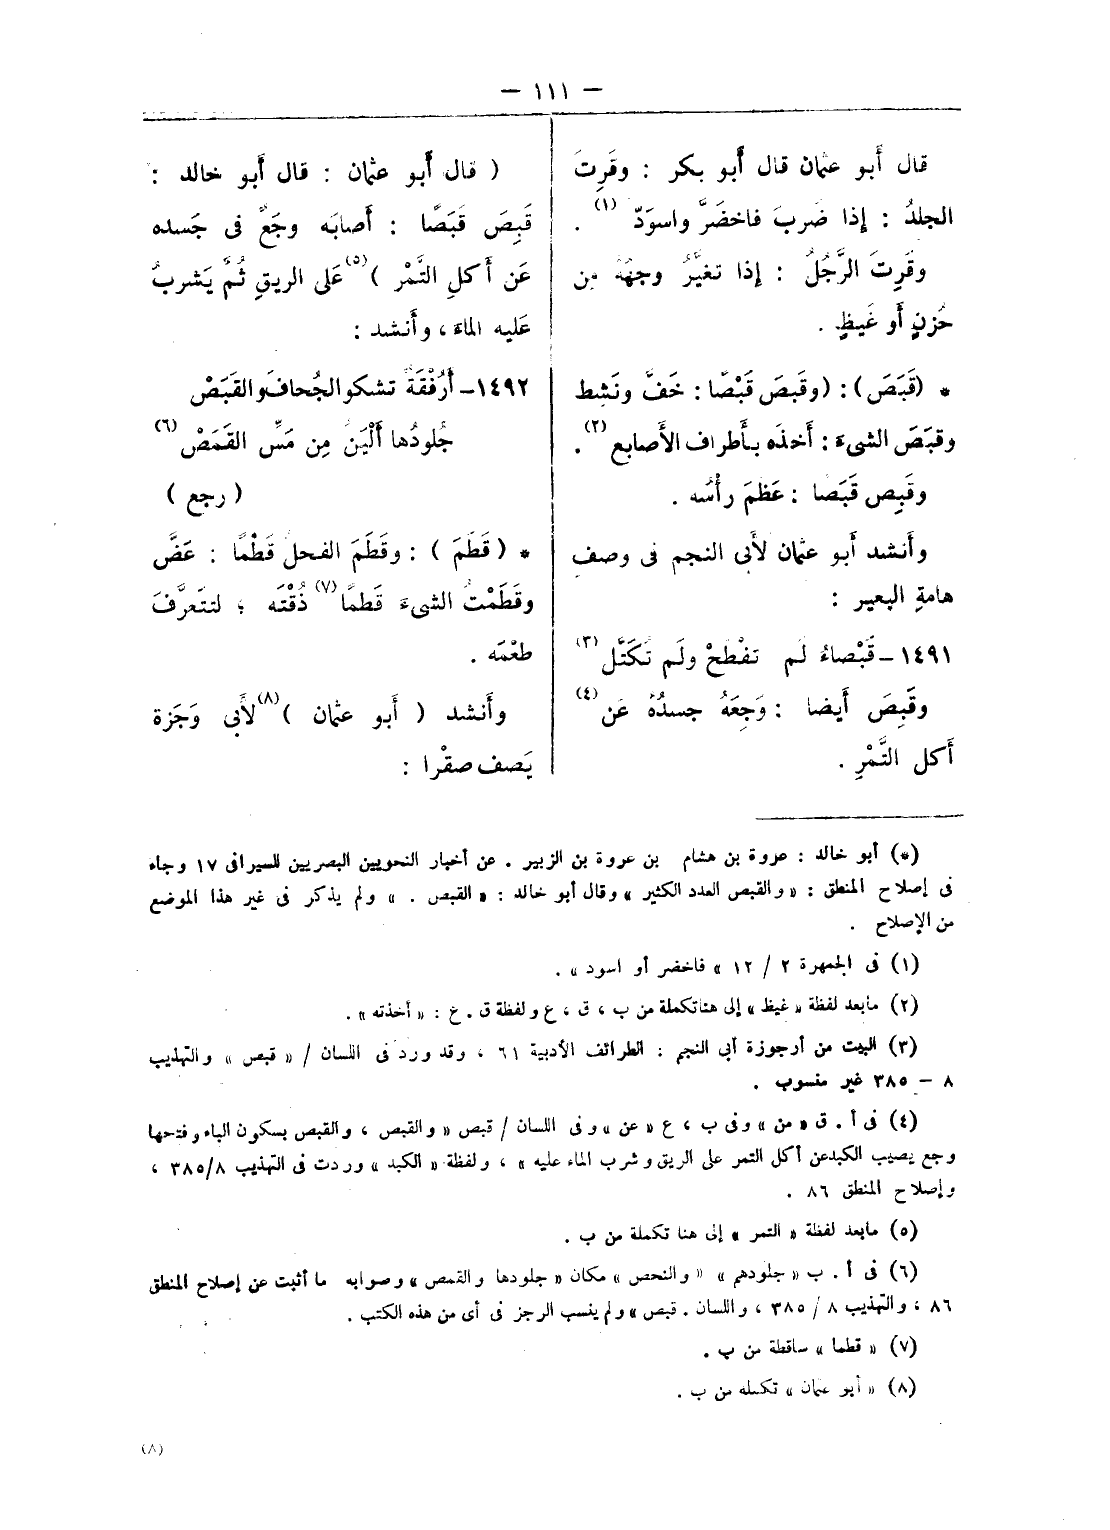 — ١١١ —
قال أبو عثمان قال أبو بكر : وقَرِتَ
الجلدُ : إذا ضَربَ فاخضَرَّ واسوَدّ (١) .
وقَرِتَ الرَّجُلُ : إذا تغيَّرُ وجهُهُ مِن
حُزنٍ أو غَيظٍ .
* (قَبَصَ) : (وقبصَ قَبْصًا : خَفَّ ونَشِط
وقبَصَ الشىءَ : أخذَه بأطراف الأصابع (٢) .
وقَبِص قَبَصًا : عَظمَ رأْسُه .
وأَنشد أبو عثمان لأَبى النجم فى وصف
هامةِ البعير :
١٤٩١ – قَبْصاءُ لم تفْطَحْ ولَم تُكَتَّل (٣)
وقَبِصَ أَيضا : وَجِعَهُ جسدُهُ عَن (٤)
أَكل التَّمْرِ .
( قال أَبو عثمان : قال أَبو خالد :
قَبِصَ قَبَصًا : أَصابَه وجَعٌ فى جَسده
عَن أَكلِ التَّمْر ) (٥) عَلى الريقِ ثُمَّ يَشربُ
عَليه الماءَ ، وأَنشد :
١٤٩٢ – أَرُفْقَةً تشكو الجُحافَ والقَبَصْ
جُلودُها أَلْيَنُ مِن مَسِّ القَمَصْ (٦)
( رجع )
* ( قَطَمَ ) : وقَطَمَ الفحلُ قَطْمًا : عَضَّ
وقَطَمْتُ الشىءَ قَطمًا (٧) ذُقْتَه ؛ لتَتَعرَّفَ
طعْمَه .
وأَنشد ( أَبو عثمان ) (٨) لأَبى وَجَزة
يَصف صقْرا :
(*) أبو خالد : عروة بن هشام بن عروة بن الزبير . عن أخبار النحويين البصريين للسيرافى ١٧ وجاء
فى إصلاح المنطق : « والقبص العدد الكثير » وقال أبو خالد : « القبص . » ولم يذكر فى غير هذا الموضع
من الإصلاح .
(١) فى الجمهرة ٢ / ١٢ « فاخضر أو اسود » .
(٢) مابعد لفظة « غيظ » إلى هنا تكملة من ب ، ق ، ع ولفظة ق . ع : « أخذته » .
(٣) البيت من أرجوزة أبى النجم : الطرائف الأدبية ٦١ ، وقد ورد فى اللسان / « قبص » والتهذيب
٨ – ٣٨٥ غير منسوب .
(٤) فى أ . ق « من » وفى ب ، ع « عن » وفى اللسان / قبص « والقبص ، والقبص بسكون الباء وفتحها
وجع يصيب الكبد عن أكل التمر على الريق وشرب الماء عليه » ، ولفظة « الكبد » وردت فى التهذيب ٣٨٥/٨ ،
وإصلاح المنطق ٨٦ .
(٥) مابعد لفظة « التمر » إلى هنا تكملة من ب .
(٦) فى أ . ب « جلودهم » « والنحص » مكان « جلودها والقمص » وصوابه ما أثبت عن إصلاح المنطق
٨٦ ، والتهذيب ٨ / ٣٨٥ ، واللسان . قبص » ولم ينسب الرجز فى أى من هذه الكتب .
(٧) « قطما » ساقطة من ب .
(٨) « أبو عثمان » تكمله من ب .
(٨)